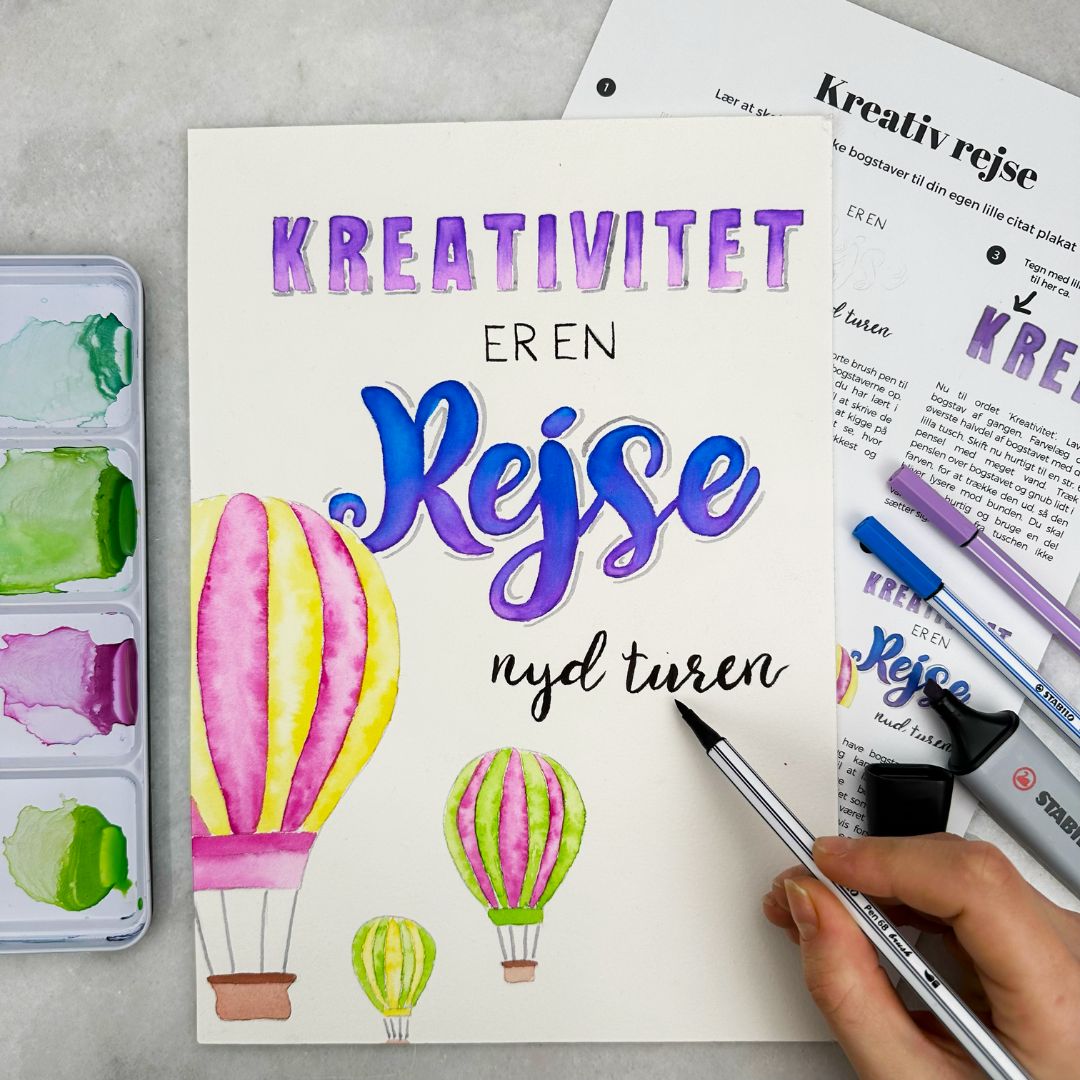 KREATIVITET
ER EN
Rejse
nyd turen
Kreativ rejse
1
Lær at
bogstaver til din egen lille citat plakat
ER EN
turen
3
Tegn med
til her ca.
KRE
brush pen til
bogstaverne op.
du har lært i
at skrive de
at kigge på
se, hvor
og
Nu til ordet 'Kreativitet'.
bogstav af gangen. Farvelæg
øverste halvdel af bogstavet med
lilla tusch. Skift nu hurtigt til en str.
pensel med meget vand. Træk
penslen over bogstavet og gnub lidt i
farven, for at trække den ud, så den
bliver lysere mod bunden. Du skal
hurtig og bruge en del
fra tuschen ikke
sætter sig
KREATIVITET
ER EN
Rejse
nyd turen
have
STABILO
STABILO
Pen 68 brush